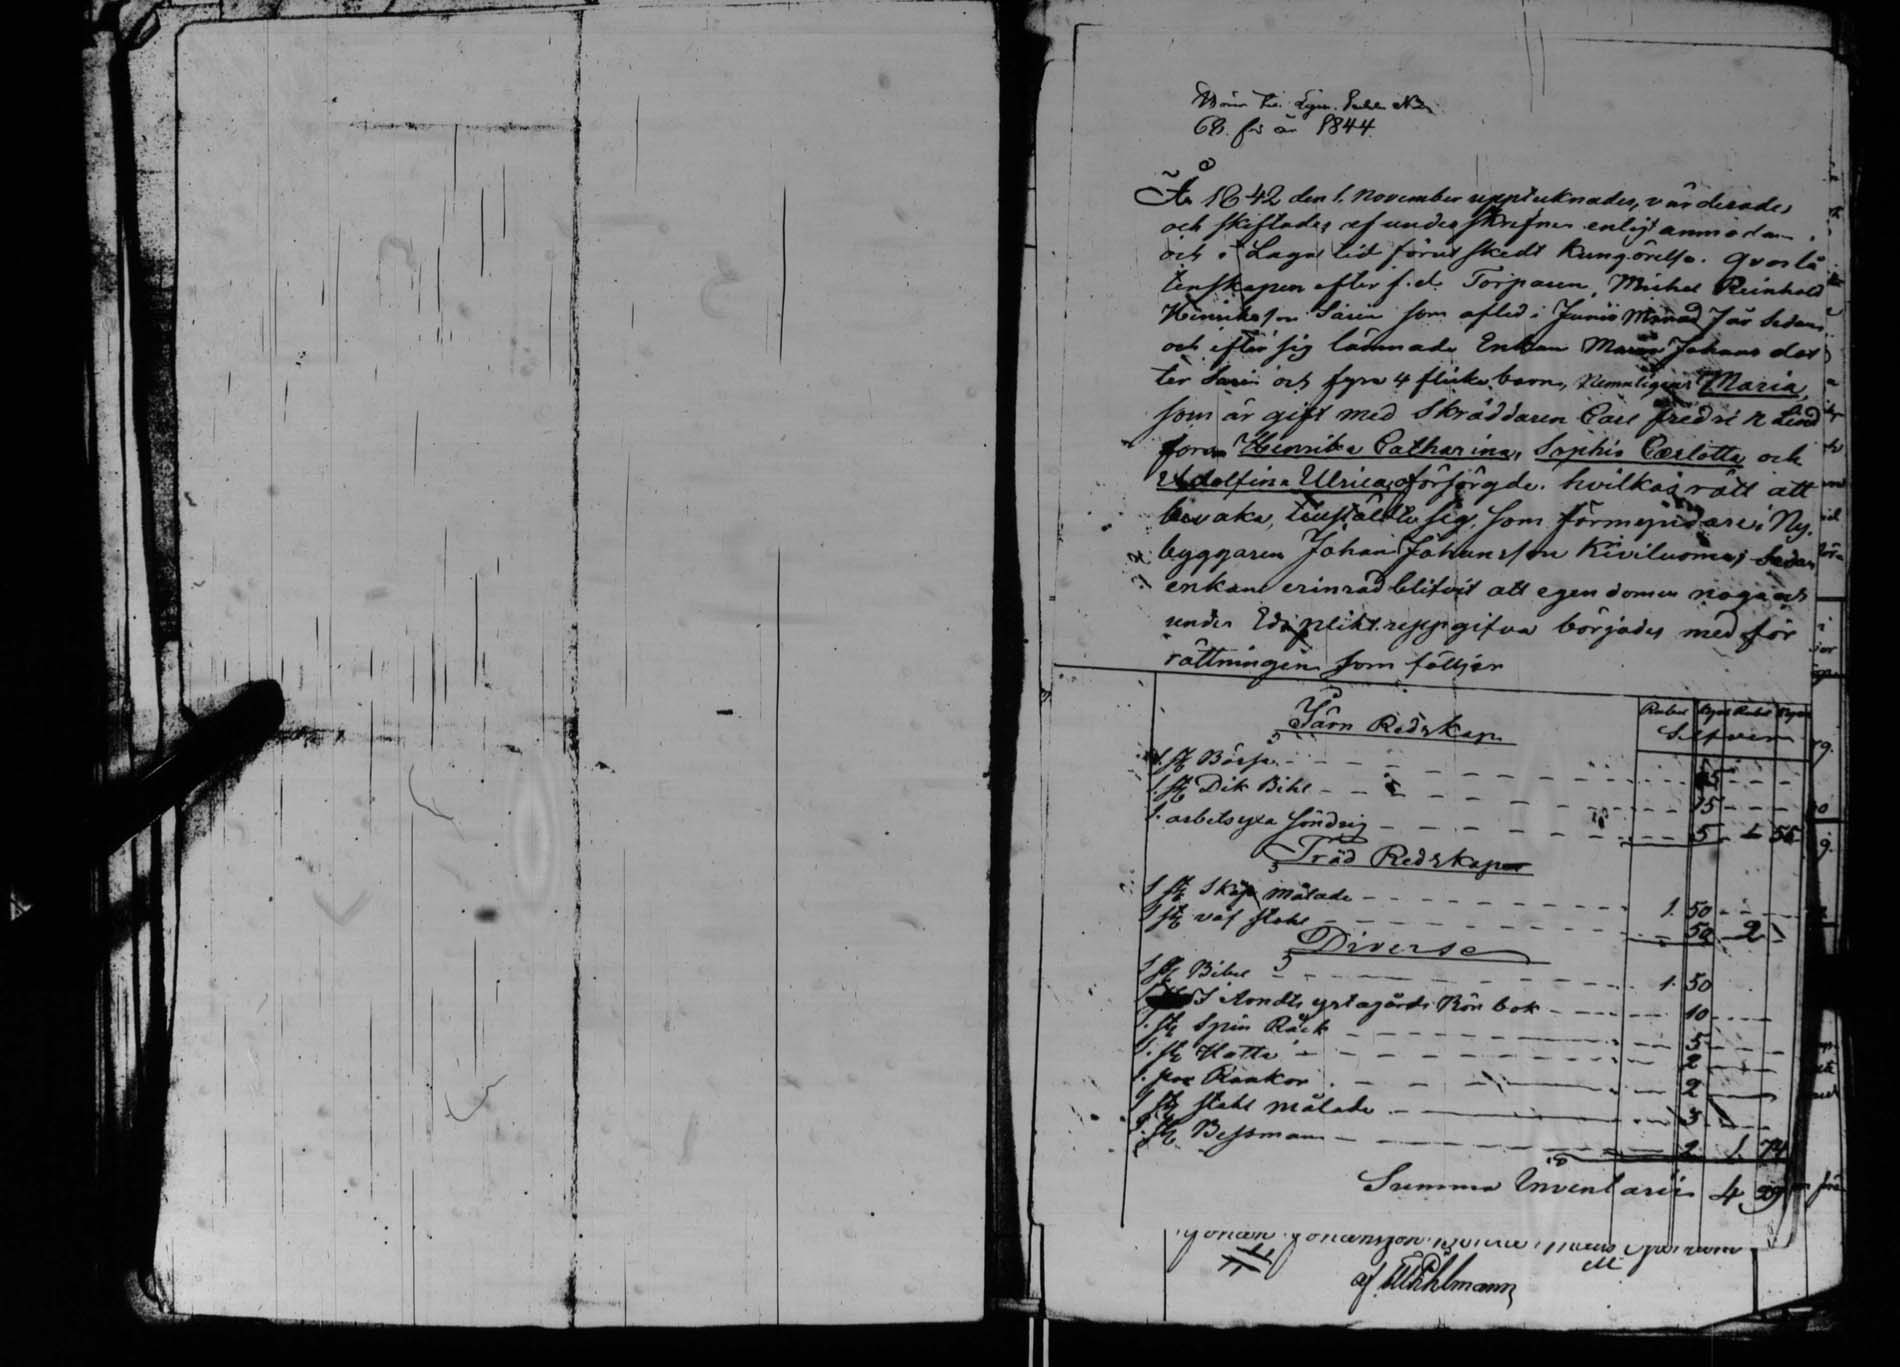 68. för år 1844
År 1842 den 1. November upptecknades, värderades
och skiftades af underskrefne enligt anmodan
och i Laga tid förut skedt Kungörelse. Qvarlå
tenskapen efter f.d. Torparen Michel Reinhold
Henriksson Sarin som afled i Junii Månad 7 år Sedan
och efter sig lämnade Enkan Maria Johans dot
ter Sarin och fyra 4 flicke barn, Nemnligen Maria,
som är gift med Skräddaren Carl Fredrik Lind
fors Henrika Catharina, Sophia Carlotta och
Adolfina Ulrica, oförsörgde. hvilkas rätt att
bevaka, instälte sig, som förmyndare Ny-
byggaren Johan Johansson Kiviluoma; Sedan
enkan erinrad blifvit att egendomen noga och
under Eds plikt uppgifva börjades med för
rättningen som följer
Rubel Kopek Rubel Kopek
Silfver
Järn Redskap
1. st Bössa 35
1. st Dik Bihl 15
1. arbetsyxa söndrig 5 55
Träd Redskaper
1 st Skåp målade 1. 50
1 st väf stohl 50 2
Diverse
1 st Bibel 1. 50
1 Arndts ystagårds Bön bok 10
1. st Spin Råck 5
1. st Hatta 2
1. par Kankor 2
1 st stohl målade 3
1. st Bessman 2 1. 74
Summa Inventarii 4 29
af Wåhlmann